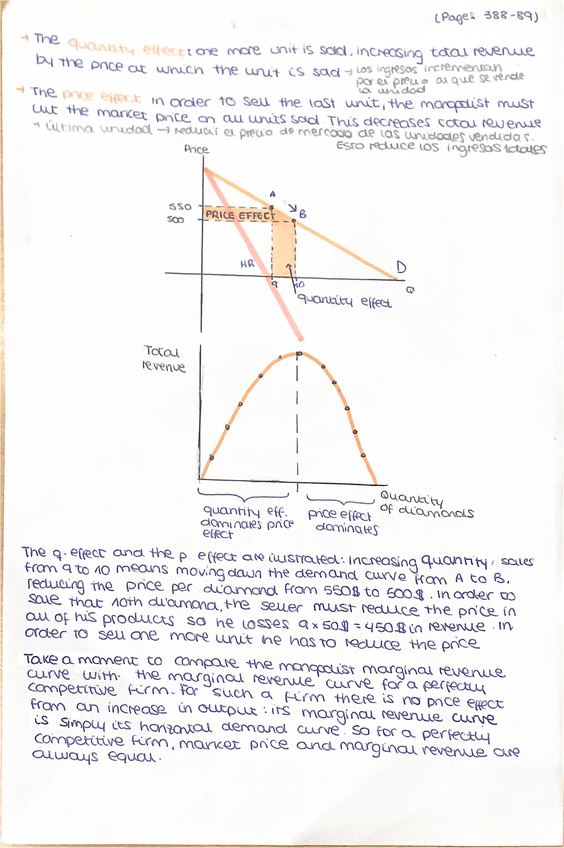 (Pages 388-89)
→ The quantity effect: one more unit is sold, increasing total revenue
by the price at which the unit is sold → los ingresos incrementan
por el precio al que se vende
la unidad
→ The price effect in order to sell the last unit, the monopolist must
cut the market price on all units sold. This decreases total revenue
→ Última unidad → reducir el precio de mercado de las unidades vendidas.
Esto reduce los ingresos totales
Price
A
550
B
PRICE EFFECT
500
D
9
10
Q
quantity effect
Total
revenue
Quantity
of diamonds
quantity eff.
dominates price
effect
price effect
dominates
The q. effect and the p. effect are ilustrated: Increasing quantity, sales
from 9 to 10 means moving down the demand curve from A to B,
reducing the price per diamond from 550$ to 500$. In order to
sale that 10th diamond, the seller must reduce the price in
all of his products so he losses 9 x 50$ = 450$ in revenue. In
order to sell one more unit he has to reduce the price
Take a moment to compare the monopolist marginal revenue
curve with the marginal revenue curve for a perfectly
competitive firm. For such a firm there is no price effect
from an increase in output: its marginal revenue curve
is simply its horizontal demand curve. So for a perfectly
competitive firm, market price and marginal revenue are
always equal.